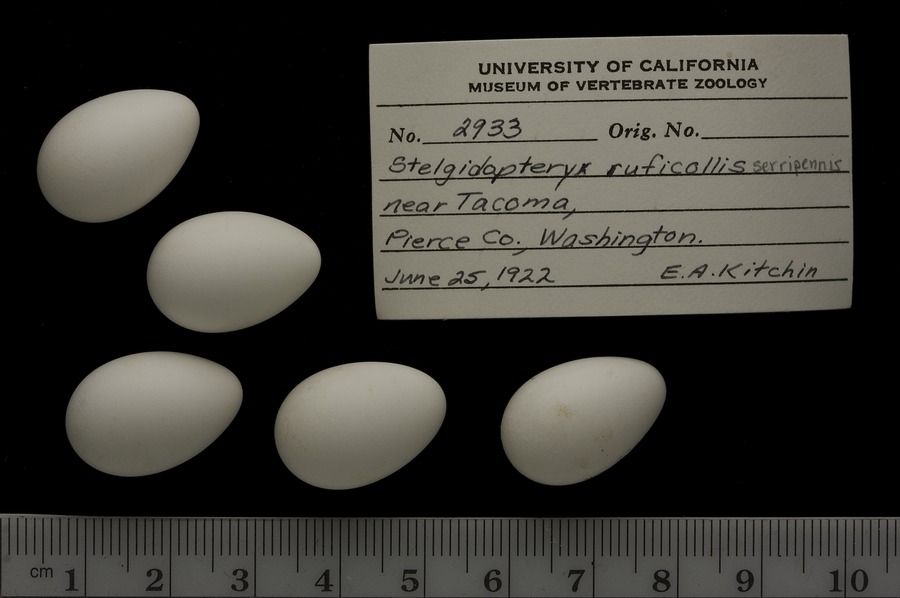 UNIVERSITY OF CALIFORNIA
MUSEUM OF VERTEBRATE ZOOLOGY
No. 2933 Orig. No.
Stelgidopteryx ruficollis serripennis
near Tacoma,
Pierce Co., Washington.
June 25, 1922 E.A. Kitchin
cm 1 2 3 4 5 6 7 8 9 10